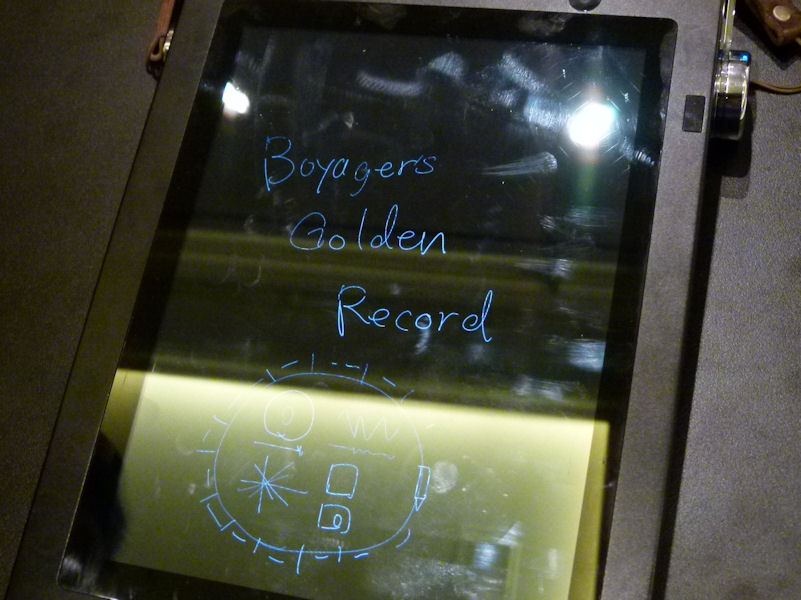 Boyagers
Golden
Record